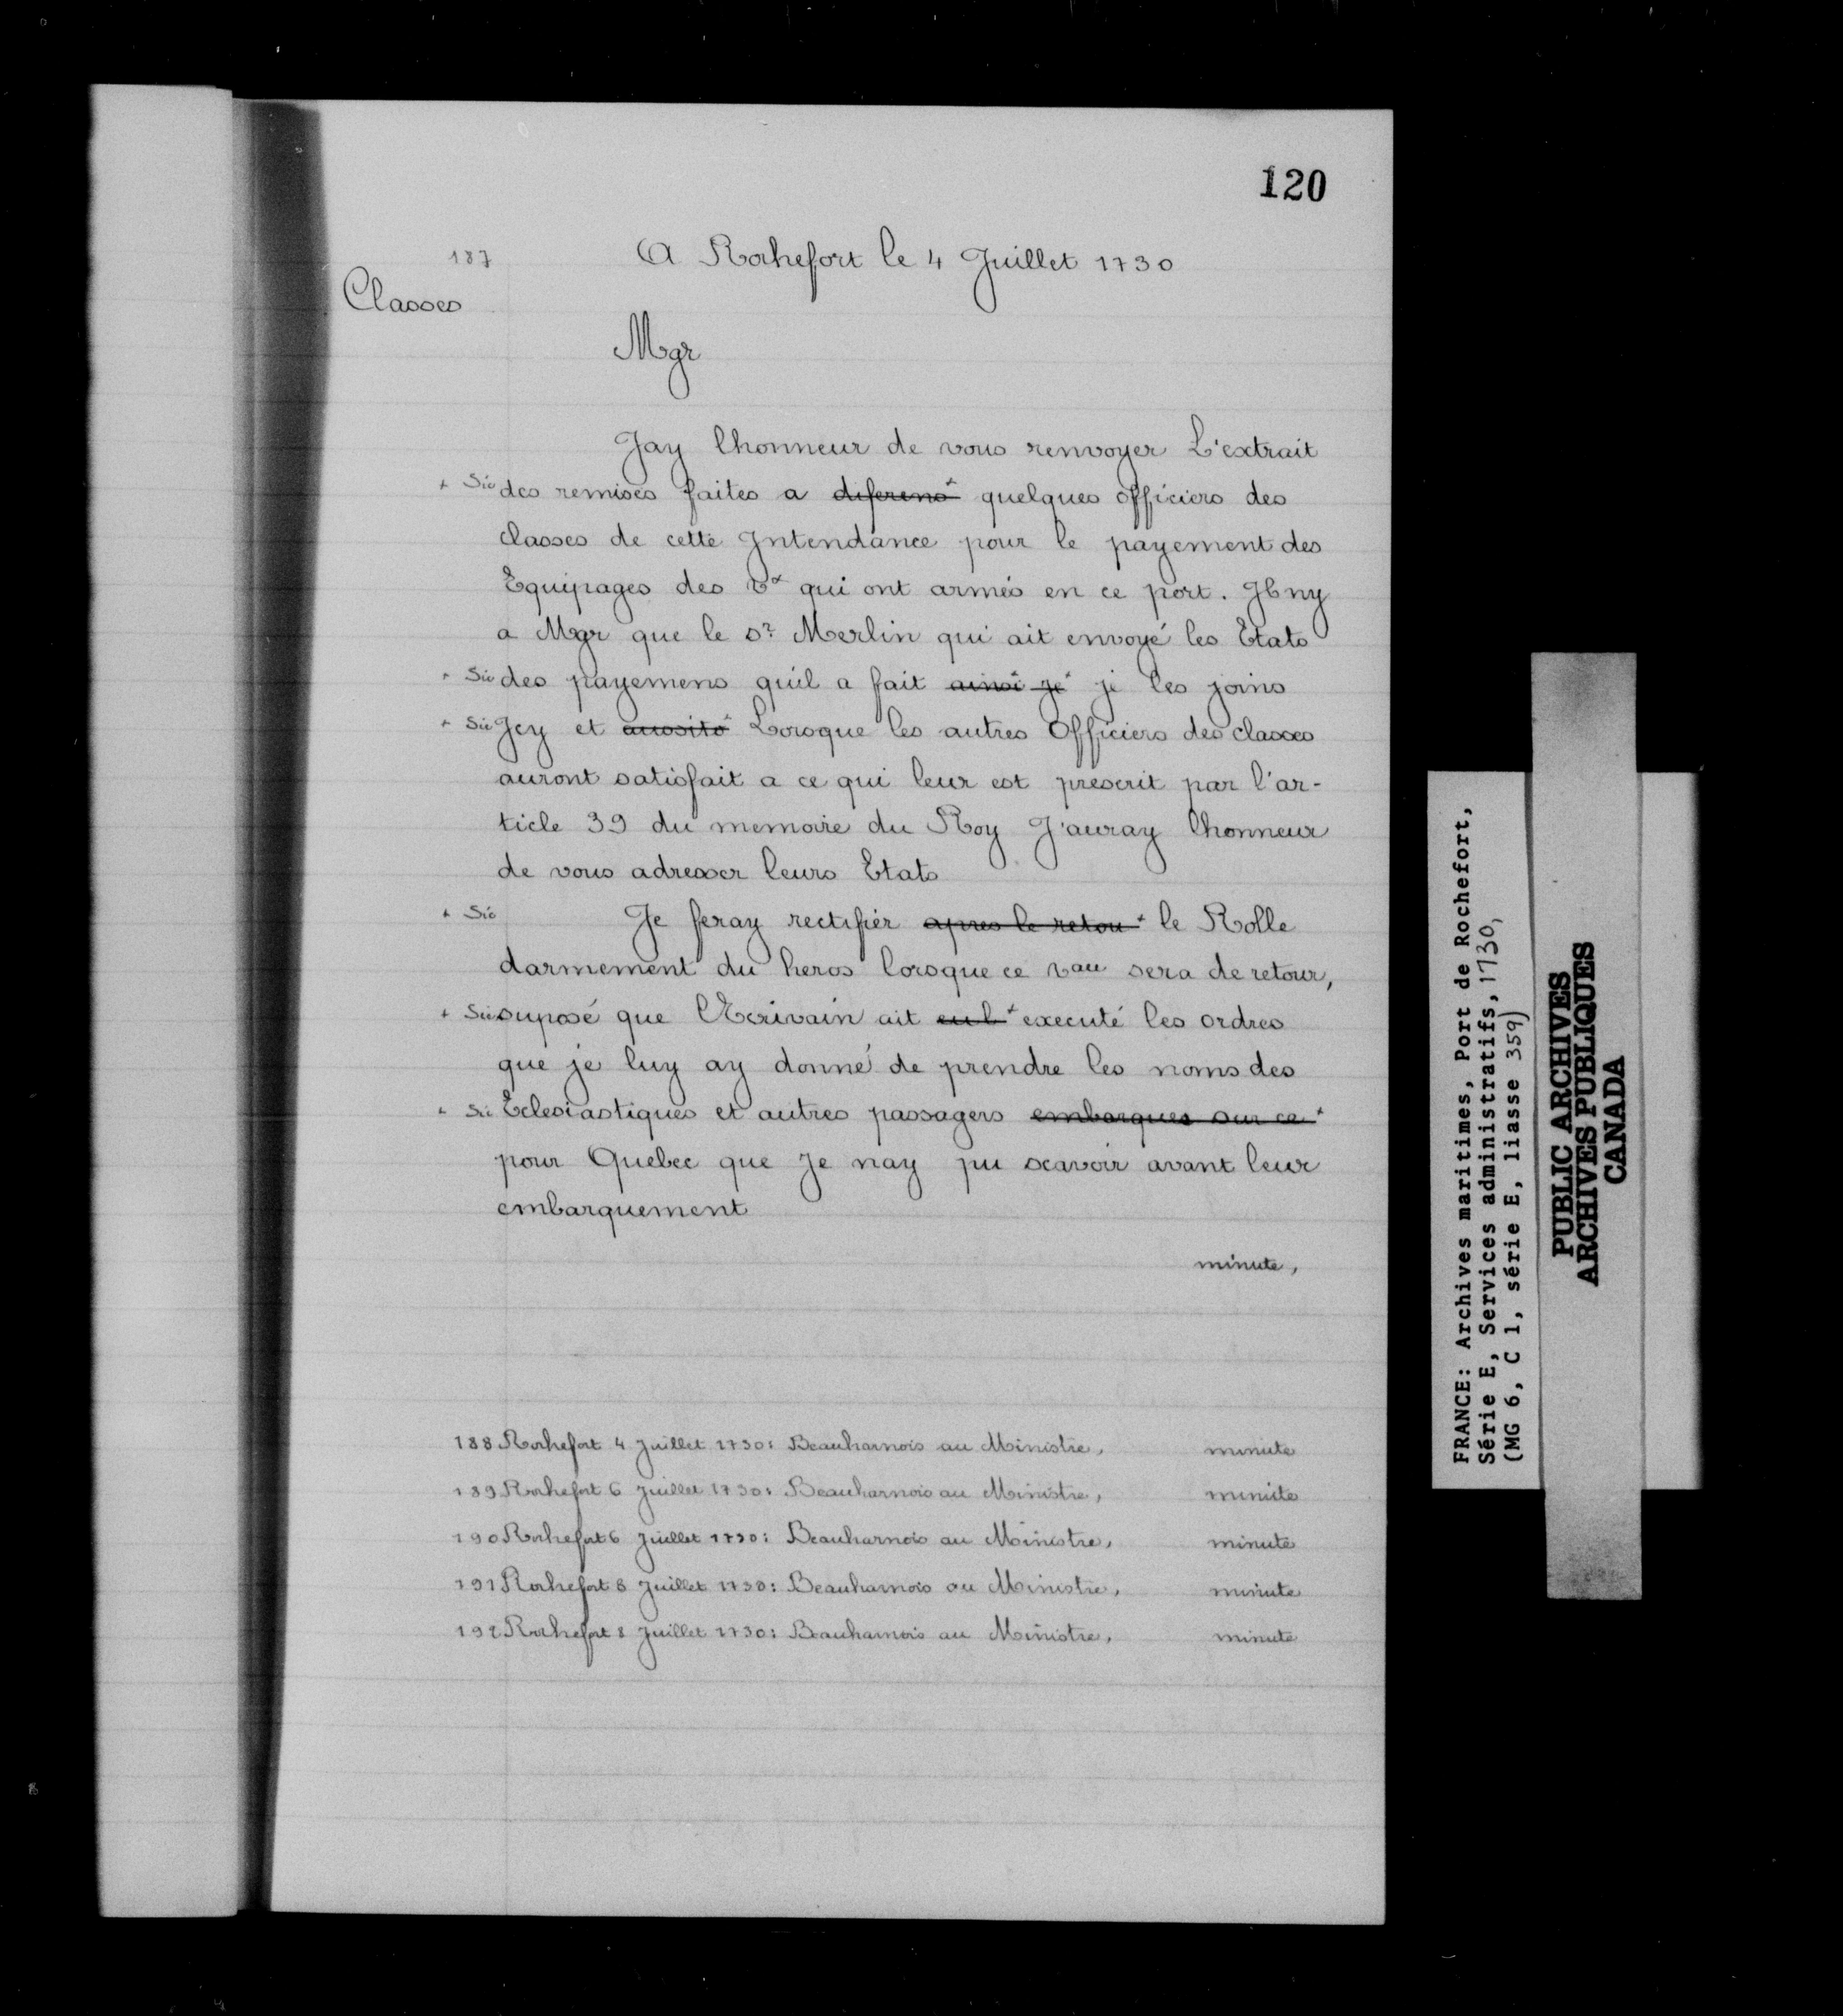 120
187
A Rochefort le 4 Juillet 1730
Classes
Mgr
Jay lhonneur de vous renvoyer L'extrait
+ Sic des remises faites a diferens+ quelques officiers des
classes de cette Intendance pour le payement des
Equipages des Vx qui ont armés en ce port. Jl ny
a Mgr que le Sr Merlin qui ait envoyé les Etats
+ Sic des payemens quil a fait ainsi je+ je les joins
+ Sic Jcy et aussito+ Lorsque les autres Officiers des classes
auront satisfait a ce qui leur est prescrit par l'ar-
ticle 39 du memoire du Roy J'auray lhonneur
de vous adresser leurs Etats
+ Sic Je feray rectifier apres le retou+ le Rolle
darmement du heros lorsque ce vau sera de retour,
+ Sic suposé que lEcrivain ait eu l+ executé les ordres
que je luy ay donné de prendre les noms des
+ Sic Eclesiastiques et autres passagers embarques sur ce+
pour Quebec que Je nay pu scavoir avant leur
embarquement
minute,
188 Rochefort 4 Juillet 1730: Beauharnois au Ministre, minute
189 Rochefort 6 Juillet 1730: Beauharnois au Ministre, minute
190 Rochefort 6 Juillet 1730: Beauharnois au Ministre, minute
191 Rochefort 8 Juillet 1730: Beauharnois au Ministre, minute
192 Rochefort 8 Juillet 1730: Beauharnois au Ministre, minute
FRANCE: Archives maritimes, Port de Rochefort,
Série E, Services administratifs, 1730,
(MG 6, C 1, série E, liasse 359)
PUBLIC ARCHIVES
ARCHIVES PUBLIQUES
CANADA